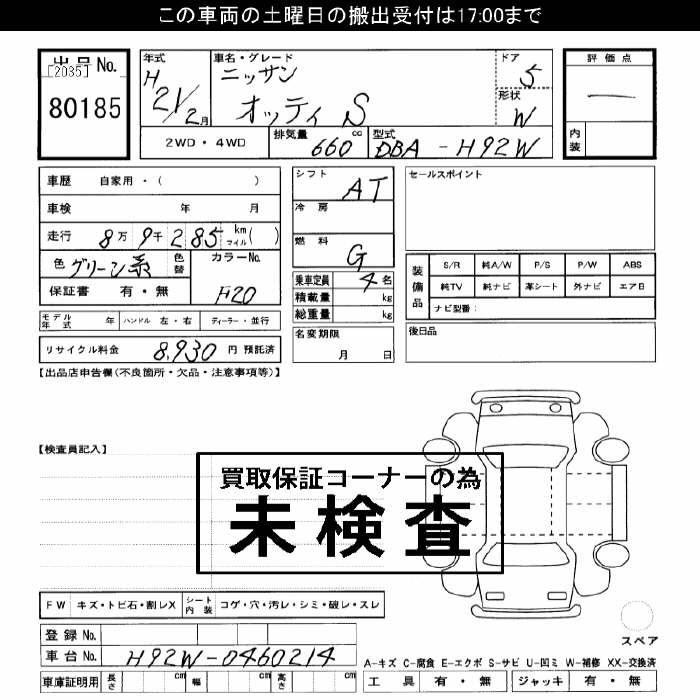 この車両の土曜日の搬出受付は17:00まで
出品No.
[2035]
80185
年式
H21/2月
車名・グレード
ニッサン
オッティ S
ドア
5
形状
W
評価点
—
内装
2WD・4WD
排気量 660 cc
型式 DBA-H92W
車歴 自家用・( )
車検 年 月
走行 8万9千285 km マイル ( )
色 グリーン系
色替
カラーNo.
H20
保証書 有・無
モデル年式 年
ハンドル 左・右
ディーラー・並行
リサイクル料金 8,930 円 預託済
シフト
AT
冷房
燃料
G
乗車定員 4 名
積載量 kg
総重量 kg
名変期限
月 日
セールスポイント
装備品
S/R 純A/W P/S P/W ABS
純TV 純ナビ 革シート 外ナビ エアB
ナビ型番:
後日品
【出品店申告欄(不良箇所・欠品・注意事項等)】
【検査員記入】
買取保証コーナーの為
未検査
FW キズ・トビ石・割レX
シート内装 コゲ・穴・汚レ・シミ・破レ・スレ
登録No.
車台No. H92W-0460214
車庫証明用 長さ cm 幅 cm 高さ cm
スペア
A-キズ C-腐食 E-エクボ S-サビ U-凹ミ W-補修 XX-交換済
工具 有・無 ジャッキ 有・無